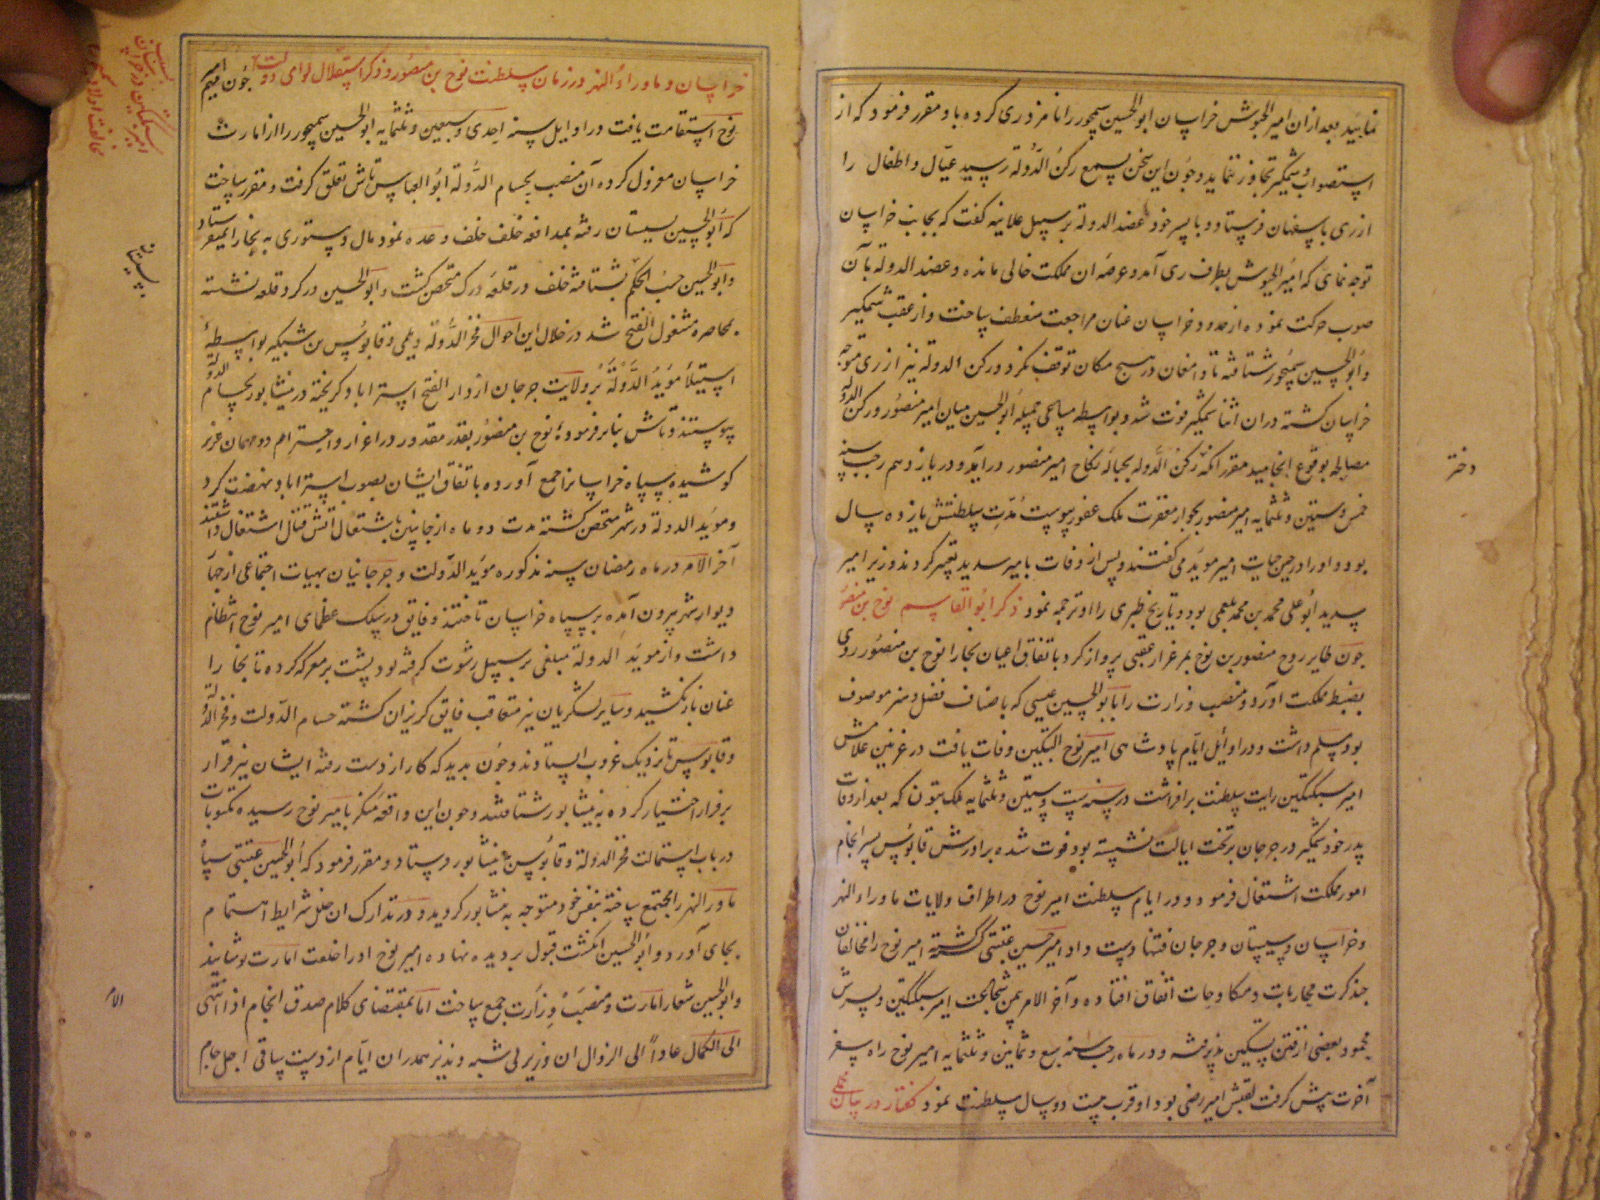 نمایید بعد ازان امیر الجیوش خراسان ابو الحسین سیمجور را نامزد ری کرده با و مقرر فرمود که از
استصواب وشمگیر تجاوز ننماید و چون این سخن بسمع رکن الدوله رسید عیال و اطفال را
از ری باصفهان فرستاد و با پسر خود عضد الدوله بر سبیل علانیه گفت که بجانب خراسان
توجه نمای که امیر الجیوش بطرف ری آمد و عرصه ان مملکت خالی مانده و عضد الدوله بآن
صوب حرکت نموده از حدود خراسان عنان مراجعت منعطف ساخت و از عقب وشمگیر
و ابو الحسین سیمجور شتافته تا دامغان در هیچ مکان توقف نکرد و رکن الدوله نیز از ری متوجه
خراسان کشته دران اثنا وشمگیر فوت شد و بواسطه مساعی جمیله ابو الحسین میان امیر منصور و رکن الدوله
مصالحه بوقوع انجامید مقرر انکه رکن الدوله بحباله نکاح امیر منصور در آید و در یازدهم رجب سنه
خمس و ستین و ثلثمایه امیر منصور بجوار مغفرت ملک غفور پیوست مدت سلطنتش یازده سال
بود و او را در حین حیات امیر موید می گفتند و پس از وفات بامیر سدید تعبیر کردند وزیر امیر
سدید ابو علی محمد بن محمد بلعمی بود و تاریخ طبری را او ترجمه نمود ذکر ابو القاسم نوح بن منصور
چون طایر روح منصور بن نوح بمرغزار عقبی پرواز کرد باتفاق اعیان بخارا نوح بن منصور روی
بضبط مملکت آورد و منصب وزارت را بابو الحسین عتبی که باصناف فضل و هنر موصوف
بود مسلم داشت و در اوایل ایام پادشاهی امیر نوح البتکین وفات یافت در غزنین غلامش
امیر سبکتکین رایت سلطنت برافراشت در سنه ست و ستین و ثلثمایه بیستون که بعد از وفات
پدر خود وشمگیر در جرجان بر تخت ایالت نشسته بود فوت شده برادرش قابوس بسرانجام
امور مملکت اشتغال فرمود و در ایام سلطنت امیر نوح در اطراف ولایات ماوراء النهر
و خراسان و سیستان و جرجان فتنها دست داد امیر حسین عتبی کشته امیر نوح را با مخالفان
چند کرت محاربات و مکاوحات اتفاق افتاده و آخر الامر بیمن شجاعت امیر سبکتکین و پسرش
محمود بعضی از فتن تسکین پذیرفته و در ماه رجب سنه سبع و ثمانین و ثلثمایه امیر نوح راه سفر
آخرت پیش کرفت لقبش امیر رضی بود او قرب بیست دو سال سلطنت نمود کفتار در بیان مجملی
دختر
خراسان و ماوراء النهر در زمان سلطنت نوح بن منصور و ذکر استقلال لوای دولت چون امیر
نوح استقامت یافت در اوایل سنه احدی و سبعین و ثلثمایه ابو الحسین سیمجور را از امارت
خراسان معزول کرده آن منصب بحسام الدوله ابو العباس تاش تعلق کرفت و مقرر ساخت
که ابو الحسین بسیستان رفته بمدافعه خلف و عده نمود مال دستوری به بخارا نمیفرستاد
و ابو الحسین حسب الحکم بشتافته خلف در قلعه درک متحصن کشت و ابو الحسین در کرد قلعه نشسته
بمحاصره مشغول شد در خلال این احوال فخر الدوله دیلمی و قابوس بن وشمگیر بواسطه
استیلاء موید الدوله بر ولایت جرجان از دار الفتح استراباد کریخته در نیشابور بحسام الدوله
پیوستند و تاش بنابر فرموده نوح بن منصور بقدر مقدور در اعزاز و احترام دو مهمان عزیز
کوشیده سپاه خراسانرا جمع آورده باتفاق ایشان بصوب استراباد نهضت کرد
و موید الدوله در شهر متحصن کشته مدت دو ماه از جانبین باشتعال آتش قتال اشتغال داشتند
آخر الامر در ماه رمضان سنه مذکوره موید الدولت و جرجانیان بهیات اجتماعی از
دیوار شهر بیرون آمده بر سپاه خراسان تاختند و فایق در سلک عظمای امیر نوح انتظام
داشت و از موید الدوله مبلغی بر سبیل رشوت کرفته بود پشت بر معرکه کرده تا بخارا
عنان باز نکشید و سایر لشکریان نیز متعاقب فایق کریزان کشته حسام الدولت و فخر الدوله
و قابوس تا نزدیک غروب ایستادند و چون بدید که کار از دست رفته ایشان نیز قرار
بر فرار اختیار کرده به نیشابور شتافتند و چون این واقعه منکر بامیر نوح رسیده مکتوبات
در باب استمالت فخر الدوله و قابوس بنیشابور فرستاد و مقرر فرمود که ابو الحسین عتبی سپاه
ماور النهر را مجتمع ساخته بنفس خود متوجه به نیشابور کردید و در تدارک ان خلل شرایط اهتمام
بجای آورد و ابو الحسین انکشت قبول بر دیده نهاده امیر نوح او را خلعت امارت پوشانید
و ابو الحسین شعار امارت و منصب وزارت جمع ساخت اما بمقتضای کلام صدق انجام اذا انتهی
الی الکمال عاد الی الزوال ان وزیر بی شبه و نذیر همدران ایام از دست ساقی اجل جام
سیستان
الامر